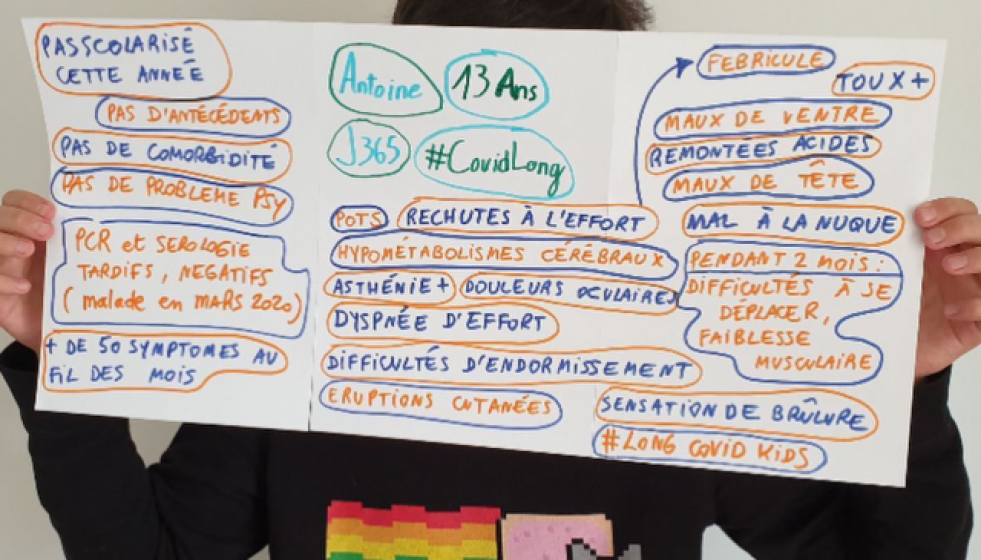 PAS SCOLARISÉ
CETTE ANNÉE
PAS D'ANTÉCÉDENTS
PAS DE COMORBIDITÉ
PAS DE PROBLEME PSY
PCR et SEROLOGIE
TARDIFS, NEGATIFS
(malade en MARS 2020)
+ DE 50 SYMPTOMES AU
FIL DES MOIS
Antoine
13 Ans
J365
#CovidLong
POTS
RECHUTES À L'EFFORT
HYPOMÉTABOLISMES CÉRÉBRAUX
ASTHÉNIE +
DOULEURS OCULAIRES
DYSPNÉE D'EFFORT
DIFFICULTÉS D'ENDORMISSEMENT
ERUPTIONS CUTANÉES
FEBRICULE
TOUX +
MAUX DE VENTRE
REMONTÉES ACIDES
MAUX DE TÊTE
MAL À LA NUQUE
PENDANT 2 MOIS :
DIFFICULTÉS À SE
DÉPLACER,
FAIBLESSE
MUSCULAIRE
SENSATION DE BRÛLURE
#LONG COVID KIDS